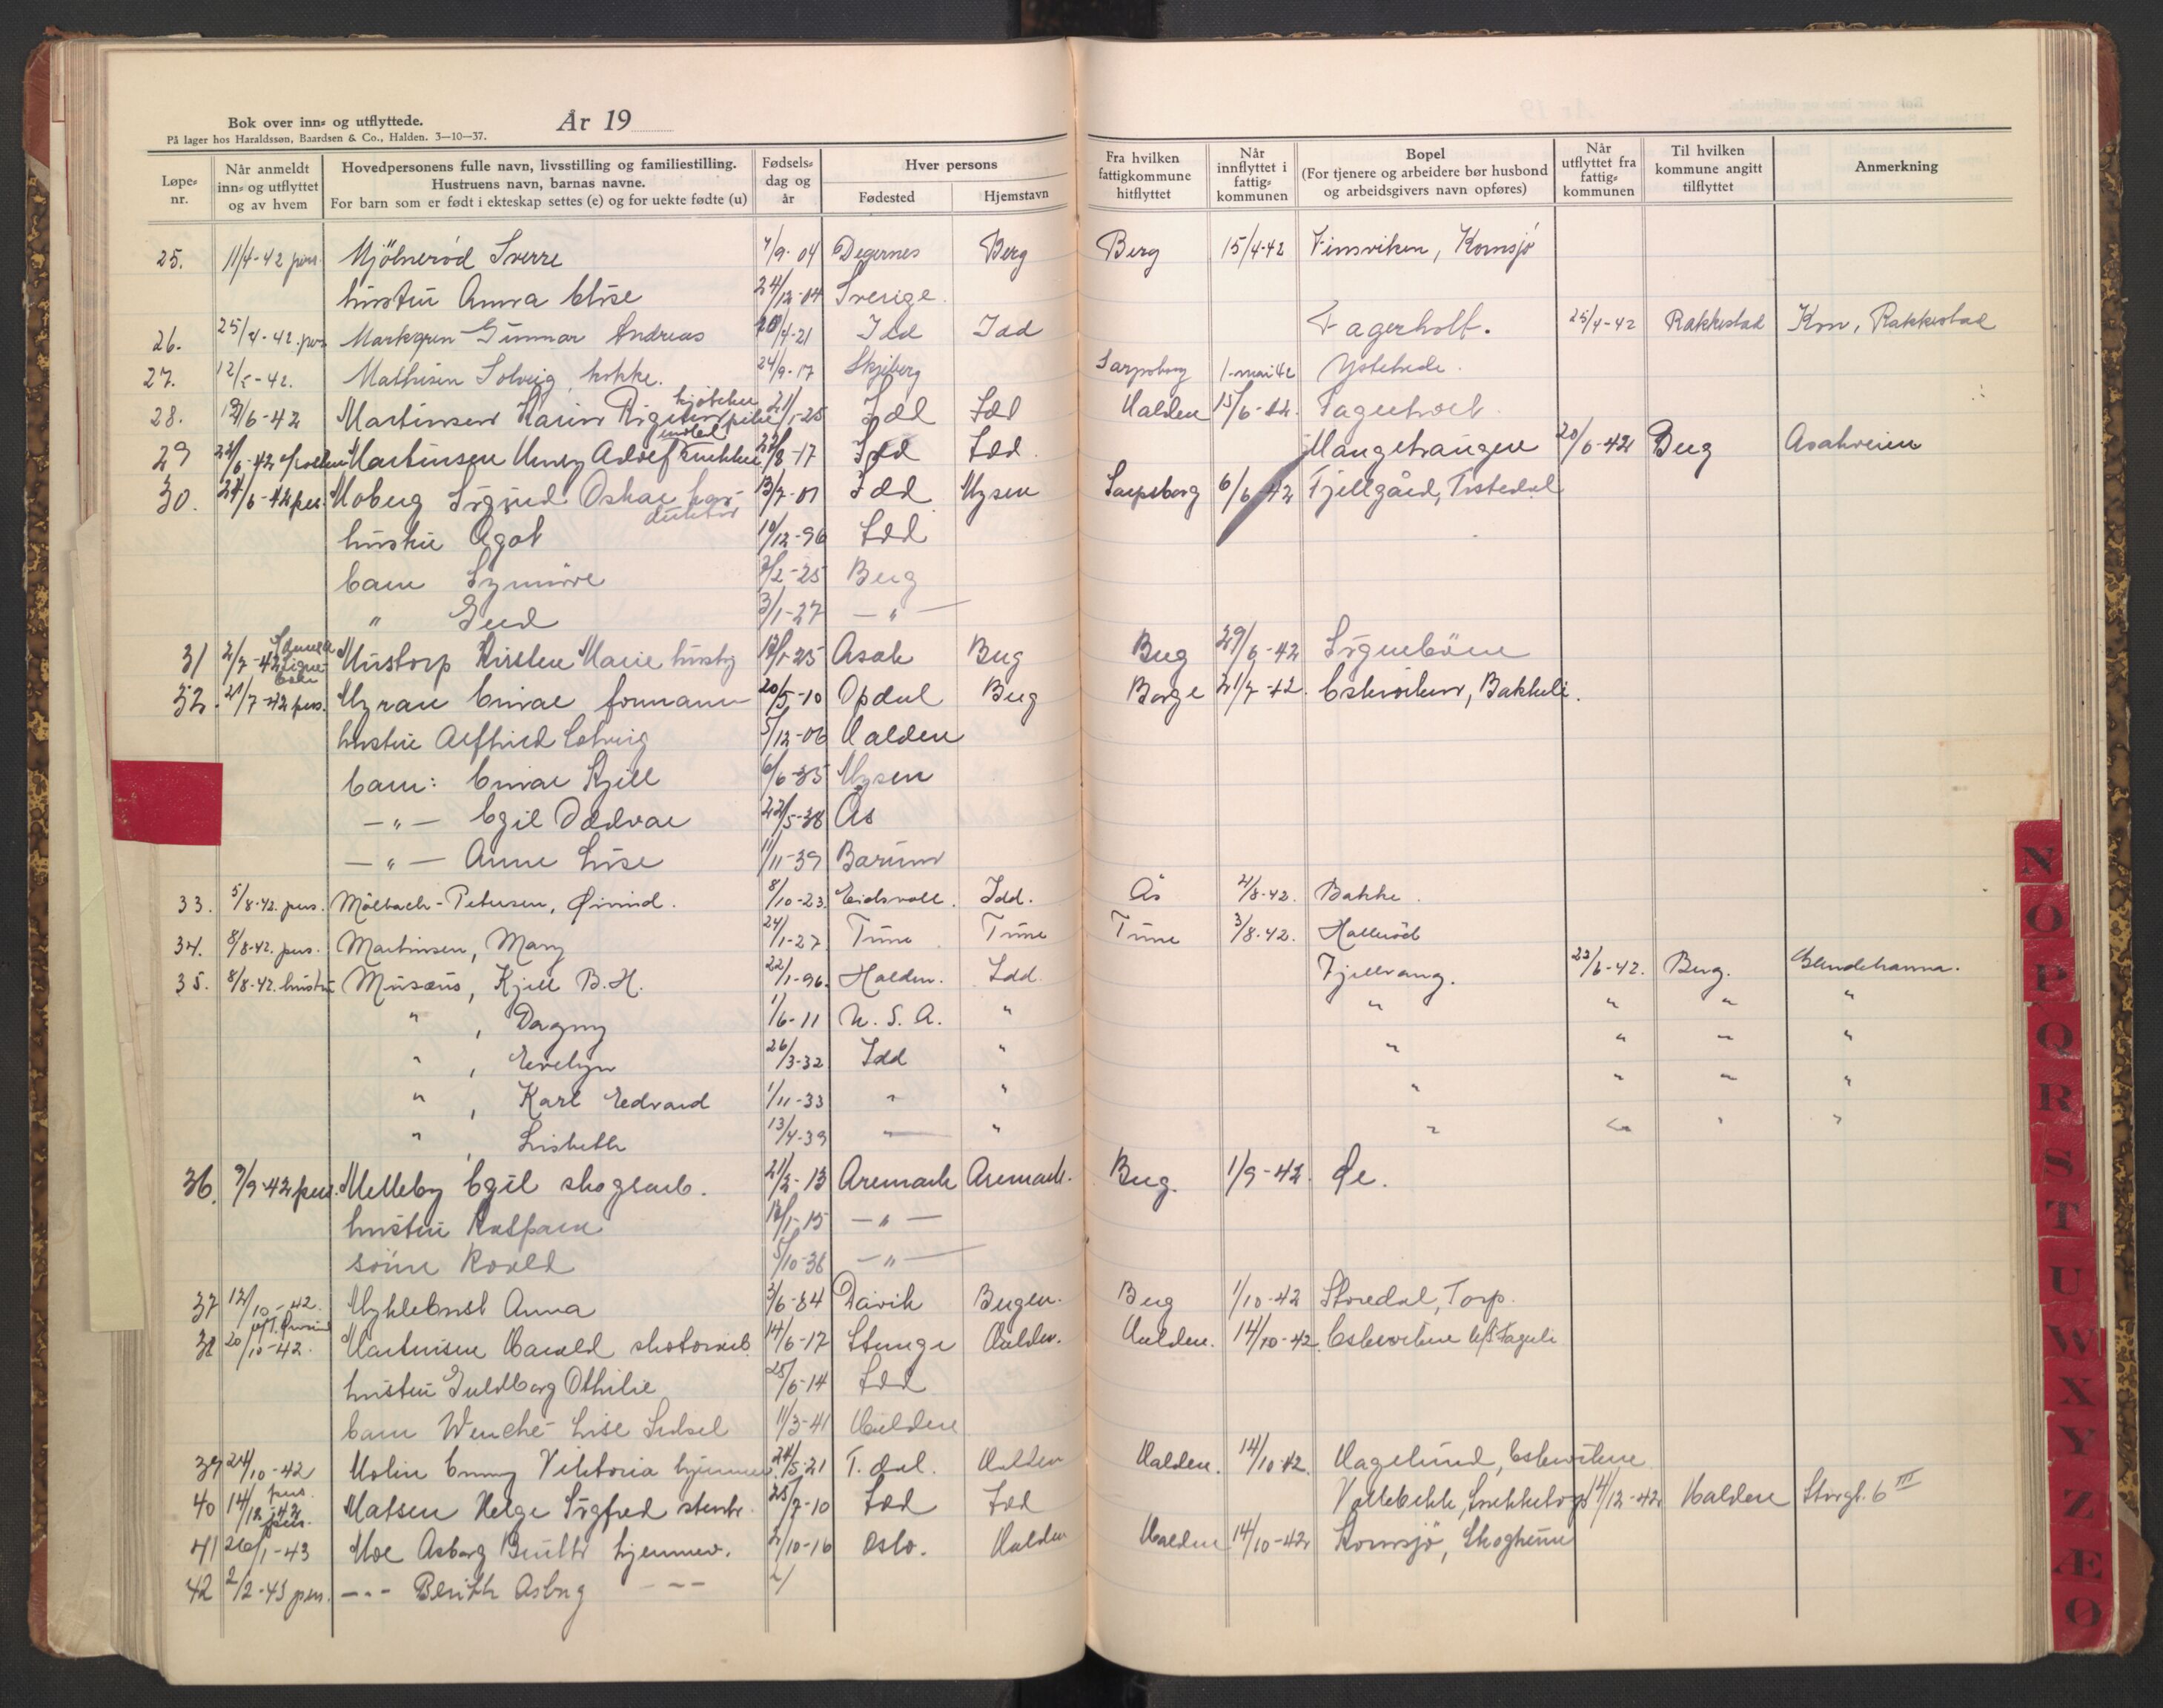 Bok over inn- og utflyttede.
På lager hos Haraldssøn, Baardsen & Co., Halden. 3—10—37.
År 19
Løpe-nr.
Når anmeldt inn- og utflyttet og av hvem
Hovedpersonens fulle navn, livsstilling og familiestilling. Hustruens navn, barnas navne. For barn som er født i ekteskap settes (e) og for uekte fødte (u)
Fødsels-dag og år
Hver persons
Fødested
Hjemstavn
Fra hvilken fattigkommune hitflyttet
Når innflyttet i fattig-kommunen
Bopel (For tjenere og arbeidere bør husbond og arbeidsgivers navn opføres)
Når utflyttet fra fattig-kommunen
Til hvilken kommune angitt tilflyttet
Anmerkning
25. 11/4-42 pers. Mjölnerød Sverre 7/9-04 Degernes Berg Berg 15/4-42 Finsviken, Kornsjø
hustru Anna Elise 24/12-04 Sverige.
26. 25/4-42. pers. Markgren Gunnar Andreas 20/4-21 Idd Idd Fagerholt. 25/4-42 Rakkestad Rakkestad
27. 12/5-42. Mathisen Solveig, kokke. 24/9-17 Skjeberg Sarpsborg 1-mai 42 Ystehede.
28. 12/6-42 Martinsen Karin 21/1-25 Idd Idd Halden 15/6-42. Fagerholt.
29 22/6-42 Martinsen Henry Adolf 22/8-17 Idd Idd. 20/6-42 Berg Asakveien
30. 24/6-42 pers. Moberg Sigurd Oskar 13/7-01 Idd Mysen Sarpsborg 6/6 42 Fjellgård, Tistedal
hustru Agot 10/12-96 Idd
barn Synnöve 2/2-25 Berg
" Gerd 3/1-27 — " —
31 2/7-42 Mustorp Kirsten Marie 12/1-25 Asak Berg Berg 29/6-42 Signebøen
32. 21/7-42 pers. Myran Einar formann 20/5-10 Opdal Berg Borge 21/7-42. Eskeviken, Bakkeli.
hustru Alfhild Solveig 5/12-06 Halden
barn: Einar Kjell 6/6-35 Mysen
— " — Egil Oddvar 22/5-38 Ås
— " — Anne Lise 11/11-39 Bærum
33. 5/8-42. pers. Mölbach-Petersen, Øivind. 8/10-23. Eidsvoll. Idd. Ås 4/8-42. Bakke.
34. 8/8-42. pers. Martinsen, Mary 24/1-27 Tune Tune Tune 3/8-42. Hallerød
35. 8/8-42. hustru Musæus, Kjell B. H. 22/1-96. Halden. Idd. Fjellvang. 23/6-42. Berg.
" , Dagny 1/6-11 U. S. A. " " " " "
" , Evelyn 26/3-32 Idd " " " " "
" , Karl Edvard 1/11-33 " " " " " "
" , Lisbeth 13/4-39 " " " " " "
36. 9/9-42 pers. Melleby Egil skogsarb. 21/2-13 Aremark Aremark. Berg. 1/9-42. Øe.
hustru Kaspara 12/1-15 — " —
sönn Roald 5/10-36 — " —
37 12/10-42. Myklebust Anna 3/6-84 Davik Bergen. Berg 1/10-42 Storedal, Torp.
38 20/10-42. Martinsen Harald skotöiarb. 14/6-17 Stenge Halden. Halden. 14/10-42.
hustru Guldborg Othilie 25/6-14 Idd
barn Wenche Lise Sidsel 11/3-41 Halden
39 24/10-42 Molin Emmy Viktoria 24/5-21 T. dal. Halden Halden. 14/10-42. Hagelund, Eskeviken
40 14/12-42 pers. Matsen Helge Sigfred 25/7-10 Idd Idd 14/12-42 Halden Storgt. 6 III
41 26/1-43 Moe Asborg Berith hjemmev. 2/10-16 Oslo. Halden Halden 14/10-42 Kornsjö, Skogheim
42 2/2-43 pers. --- Berith Asborg --- 2/
N
O
P
Q
R
S
T
U
W
X
Y
Z
Æ
Ø